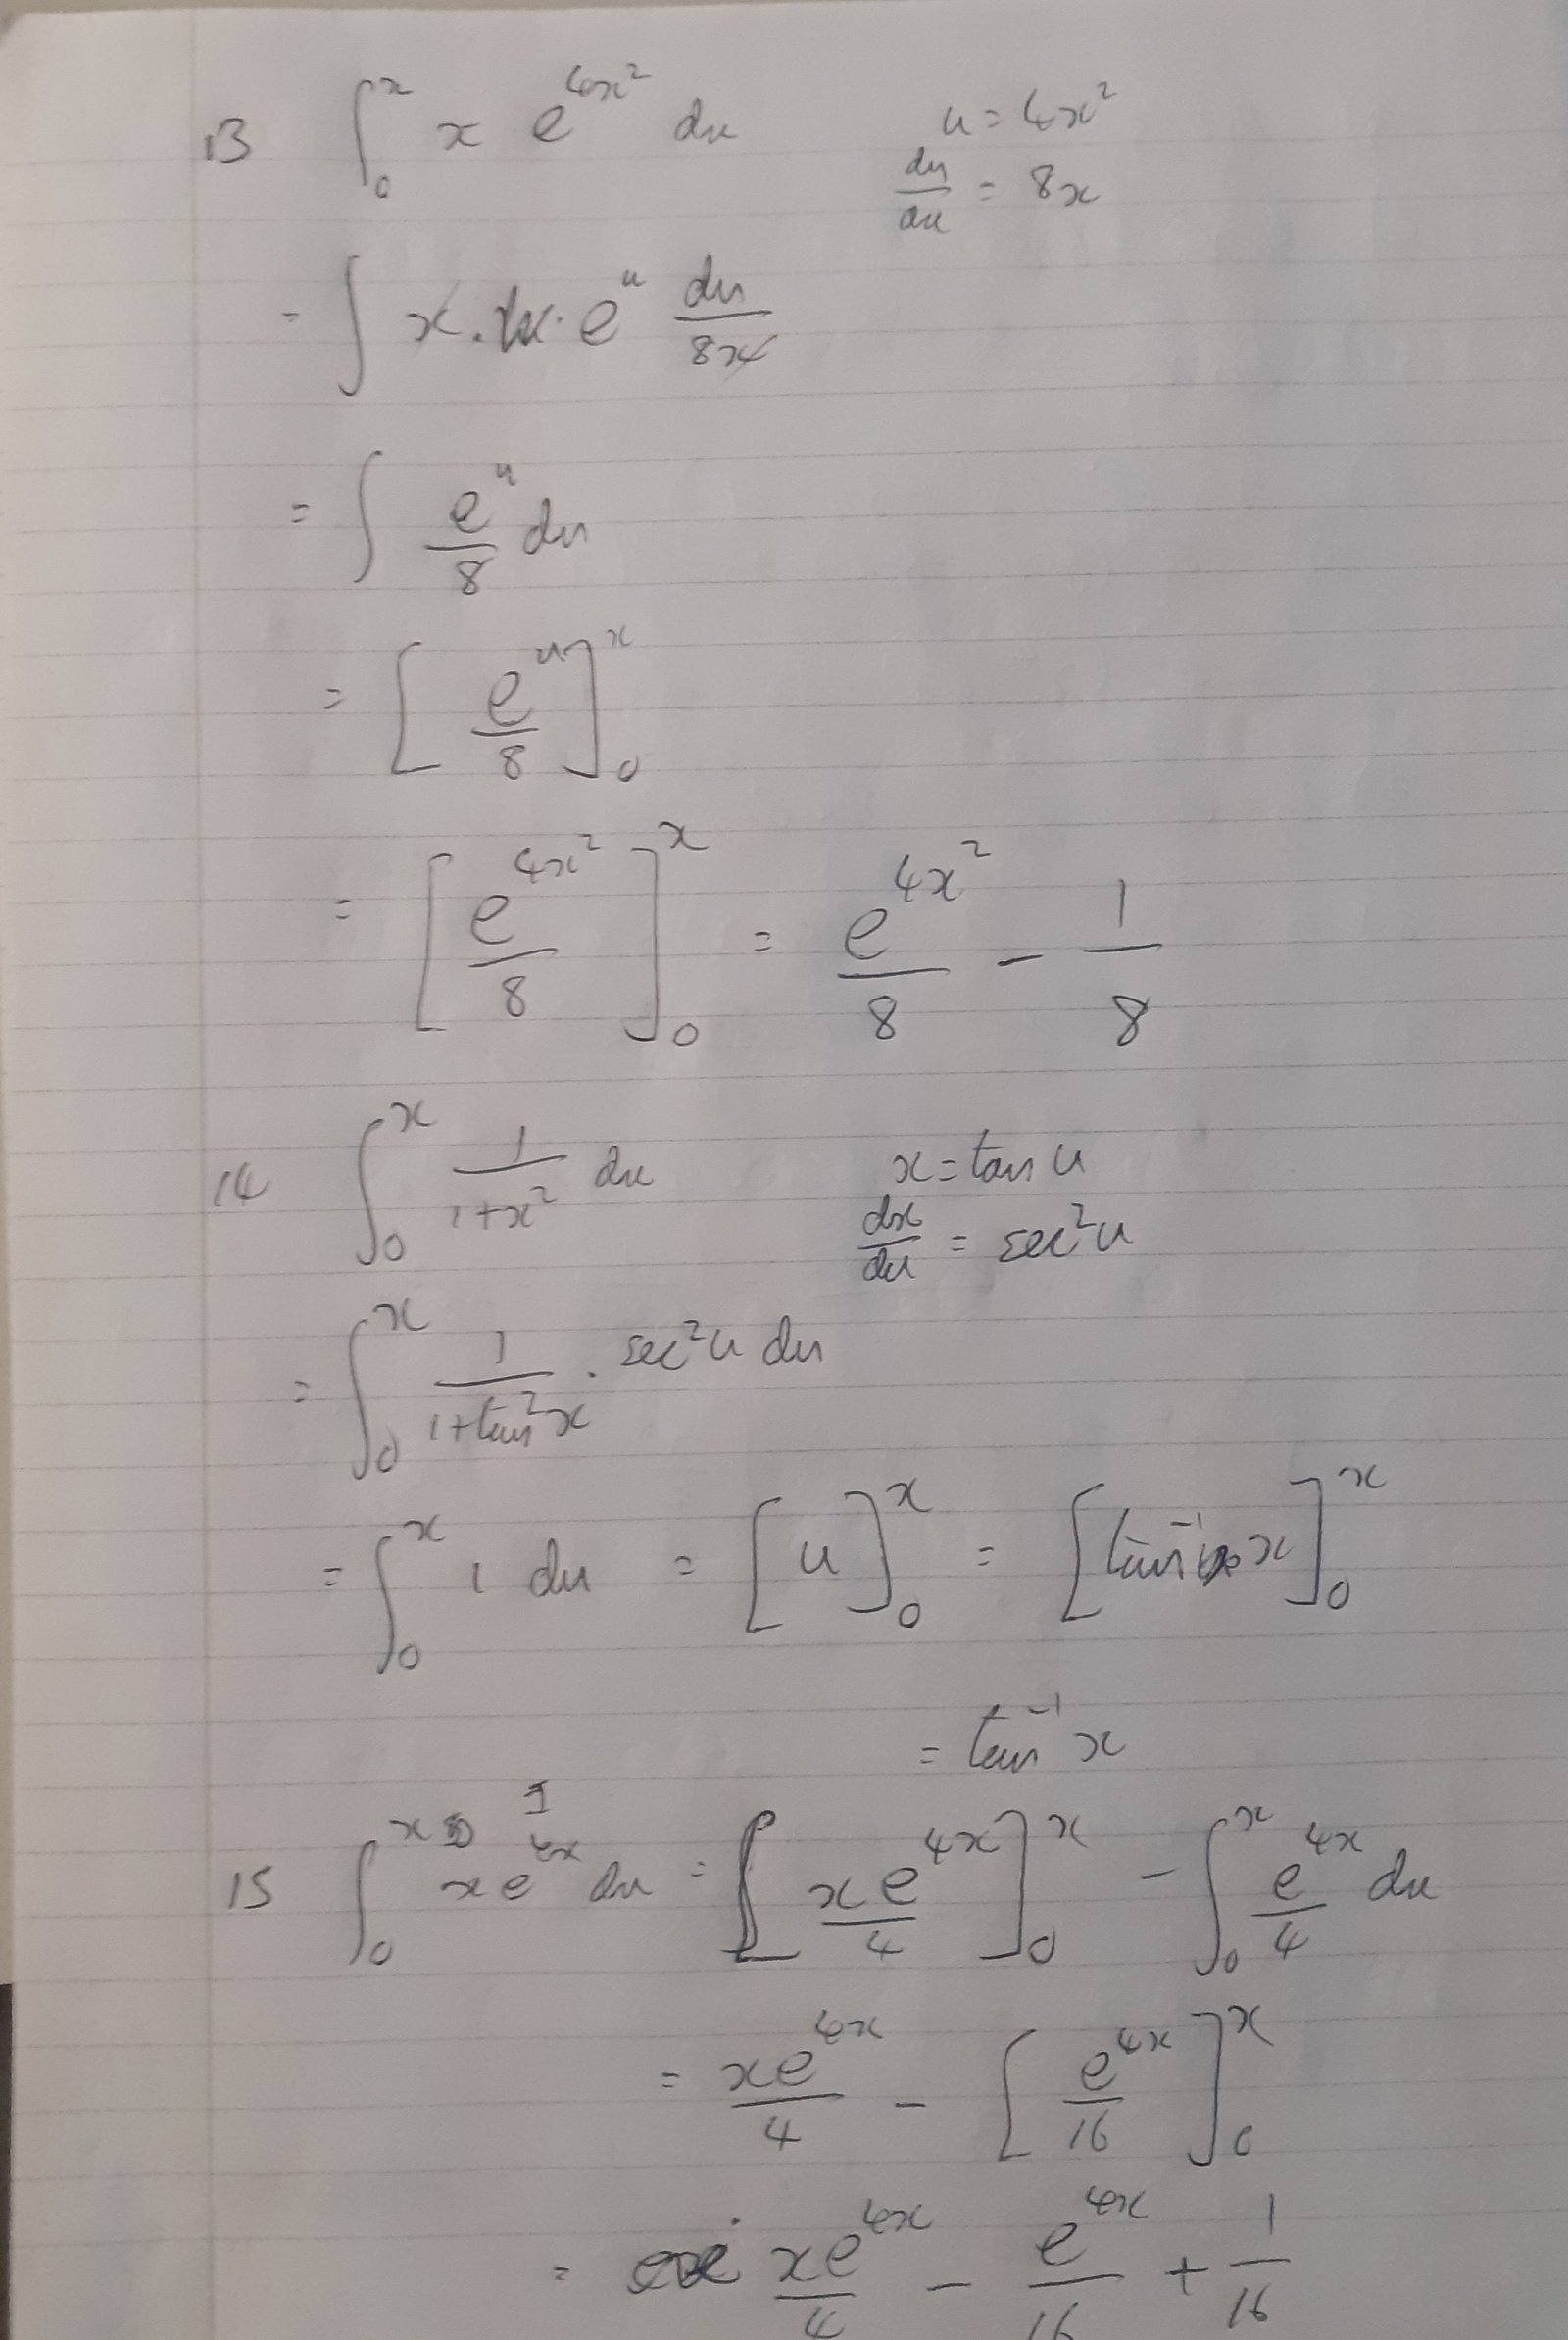 13 ∫₀ˣ x e^(4x²) dx u = 4x²
du/dx = 8x
= ∫ x . e^u du/8x
= ∫ e^u/8 du
= [e^u/8]₀ˣ
= [e^(4x²)/8]₀ˣ = e^(4x²)/8 - 1/8
14 ∫₀ˣ 1/(1+x²) dx x = tan u
dx/du = sec²u
= ∫₀ˣ 1/(1+tan²x) . sec²u du
= ∫₀ˣ 1 du = [u]₀ˣ = [tan⁻¹ x]₀ˣ
= tan⁻¹ x
D I
15 ∫₀ˣ x e^(4x) dx = [x e^(4x)/4]₀ˣ - ∫₀ˣ e^(4x)/4 dx
= x e^(4x)/4 - [e^(4x)/16]₀ˣ
= x e^(4x)/4 - e^(4x)/16 + 1/16